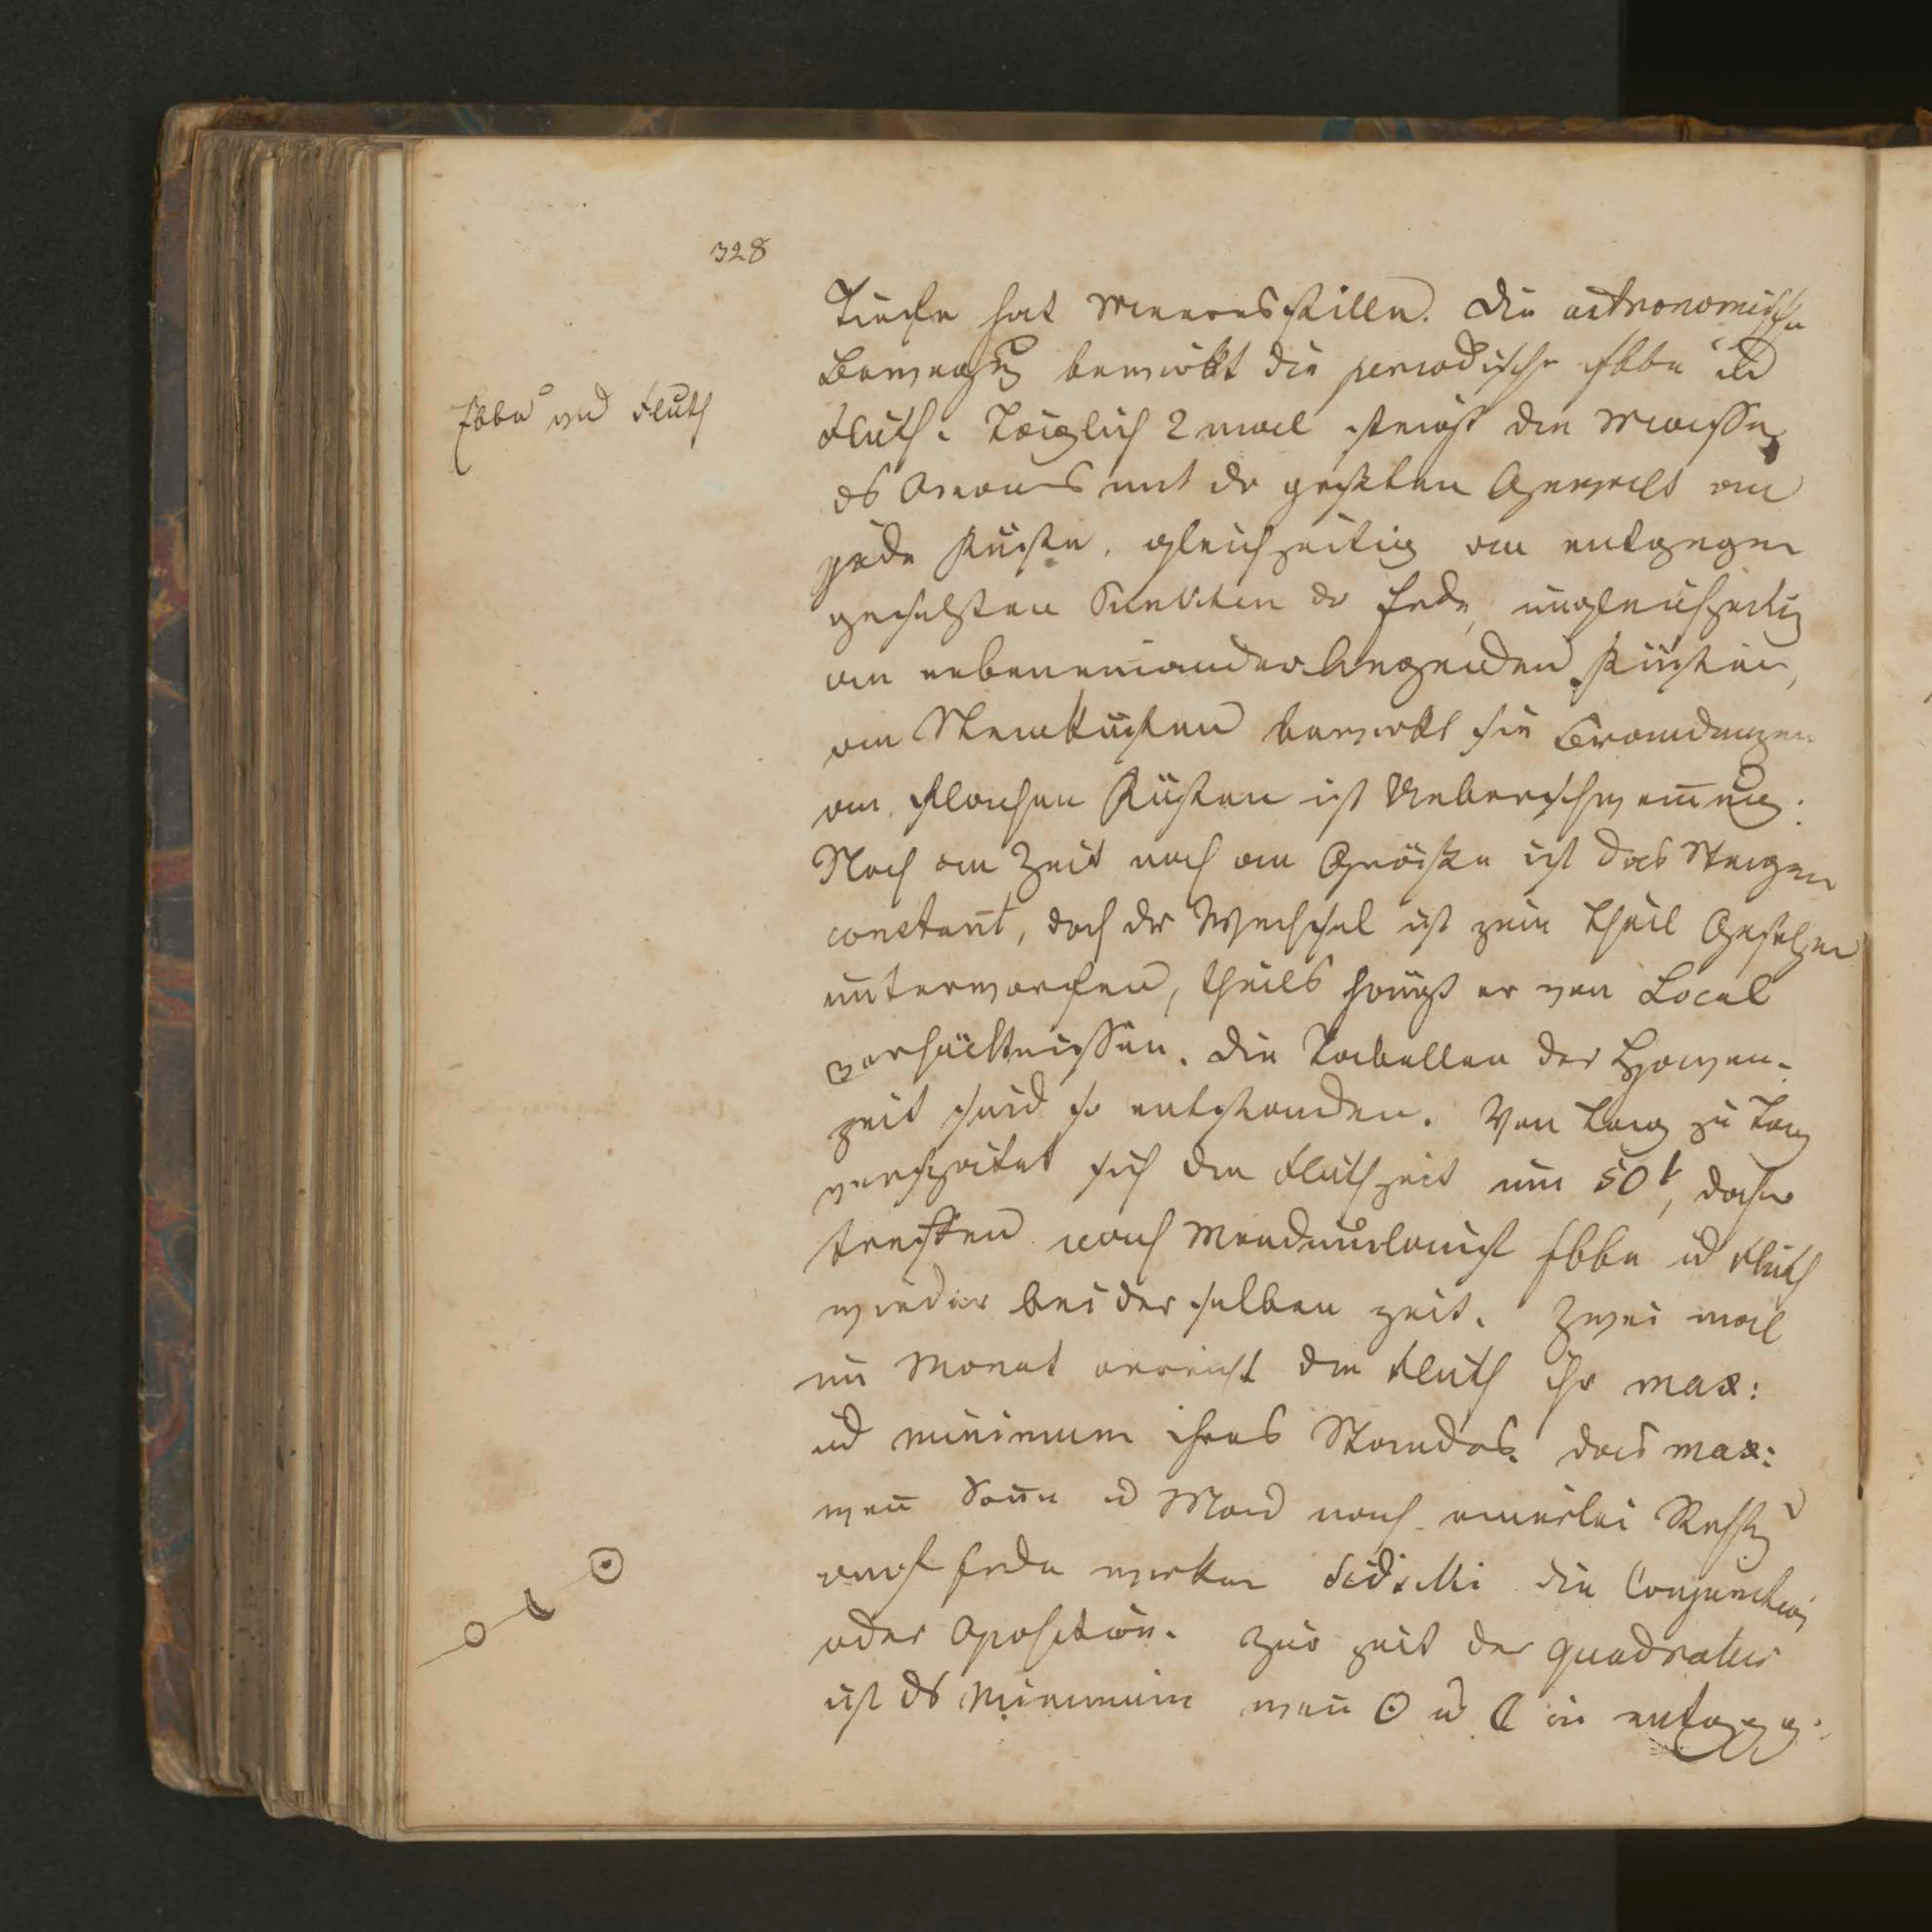 328
Tiefe hat Meeresstille. Die astronomische
Bewegung bewirkt die periodische Ebbe ud
Ebbe und Fluth
Fluth. Täglich 2 mal steigt die Masse
ds Oceans mit dr größten Gewalt an
jede Küste, gleichzeitig an entgegen
gesetzten Punkten dr Erde, ungleichzeitig
an nebeneinanderliegenden Küsten,
an Steilküsten bewirkt sie Brandungen
an flachen Küsten ist Ueberschwem̄ung.
Noch an Zeit noch an Größe ist das Steigen
constant, doch dr Wechsel ist zum Theil Gesetzen
unterworfen, theils hängt er von Local
verhältnissen. Die Tabellen der Hafen-
zeit sind so entstanden. Von Tag zu Tag
verspätet sich die Fluthzeit um 50', daher
treffen nach Mondumlauf Ebbe ud Fluth
wieder bei derselben Zeit. Zwei mal
im Monat erreicht die Fluth ihr max:
ud minimum ihres Standes. das max:
wen̄ Son̄e ud Mond nach einerlei
auf Erde wirken die Conjunction
oder Oposition. Zur Zeit der Quadratur
ist ds Minimum wen̄ ☉ ud ☾ in entgg.